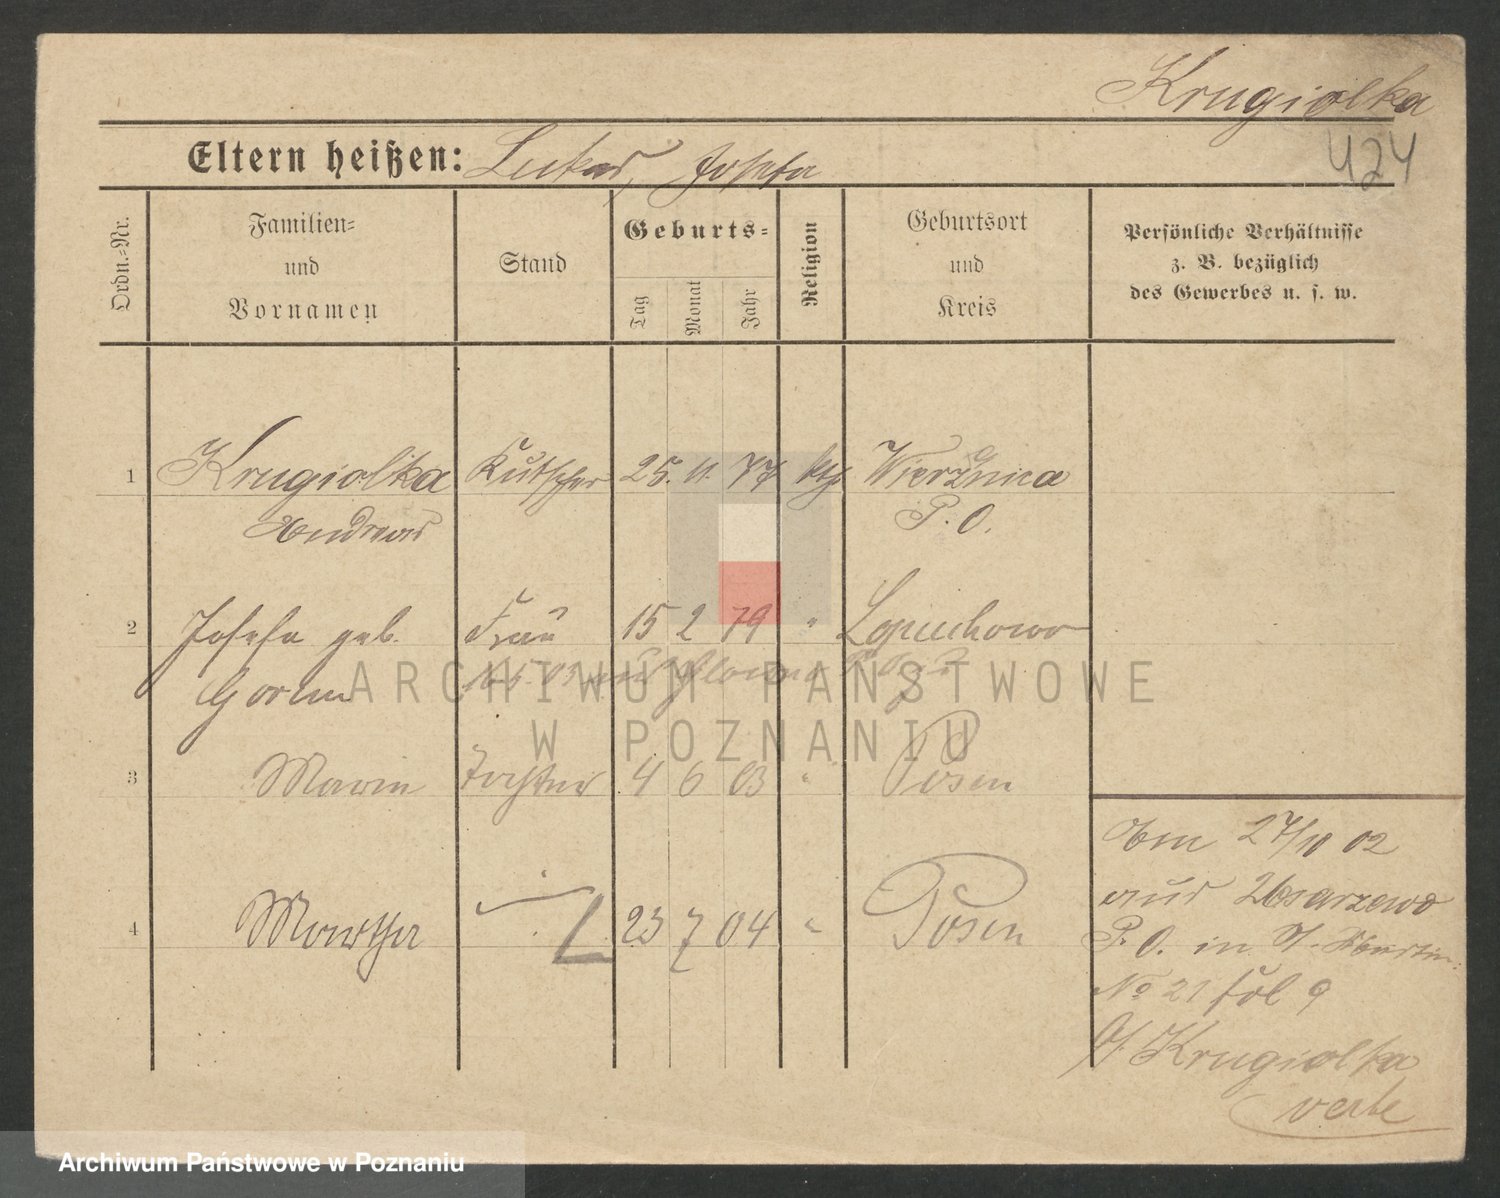 Krugiolka
424
Eltern heißen: Lukas, Josefa
Ordn.=Nr.
Familien=
und
Vornamen
Stand
Geburts=
Tag
Monat
Jahr
Religion
Geburtsort
und
Kreis
Persönliche Verhältnisse
z. B. bezüglich
des Gewerbes u. s. w.
1 Krugiolka Kutscher 25. 11. 77 kth Wierznica
Andreas P. O.
2 Josefa geb. Frau 15 2 79 " Lopuchowo
Gorна
3 Marie Tochter 4 6 03 " Posen
4 Martha 23 7 04 " Posen
27/10 02
aus
P. O. in St. Martin
No 21 fol 9
Krugiolka
verte
ARCHIWUM PAŃSTWOWE
W POZNANIU
Archiwum Państwowe w Poznaniu